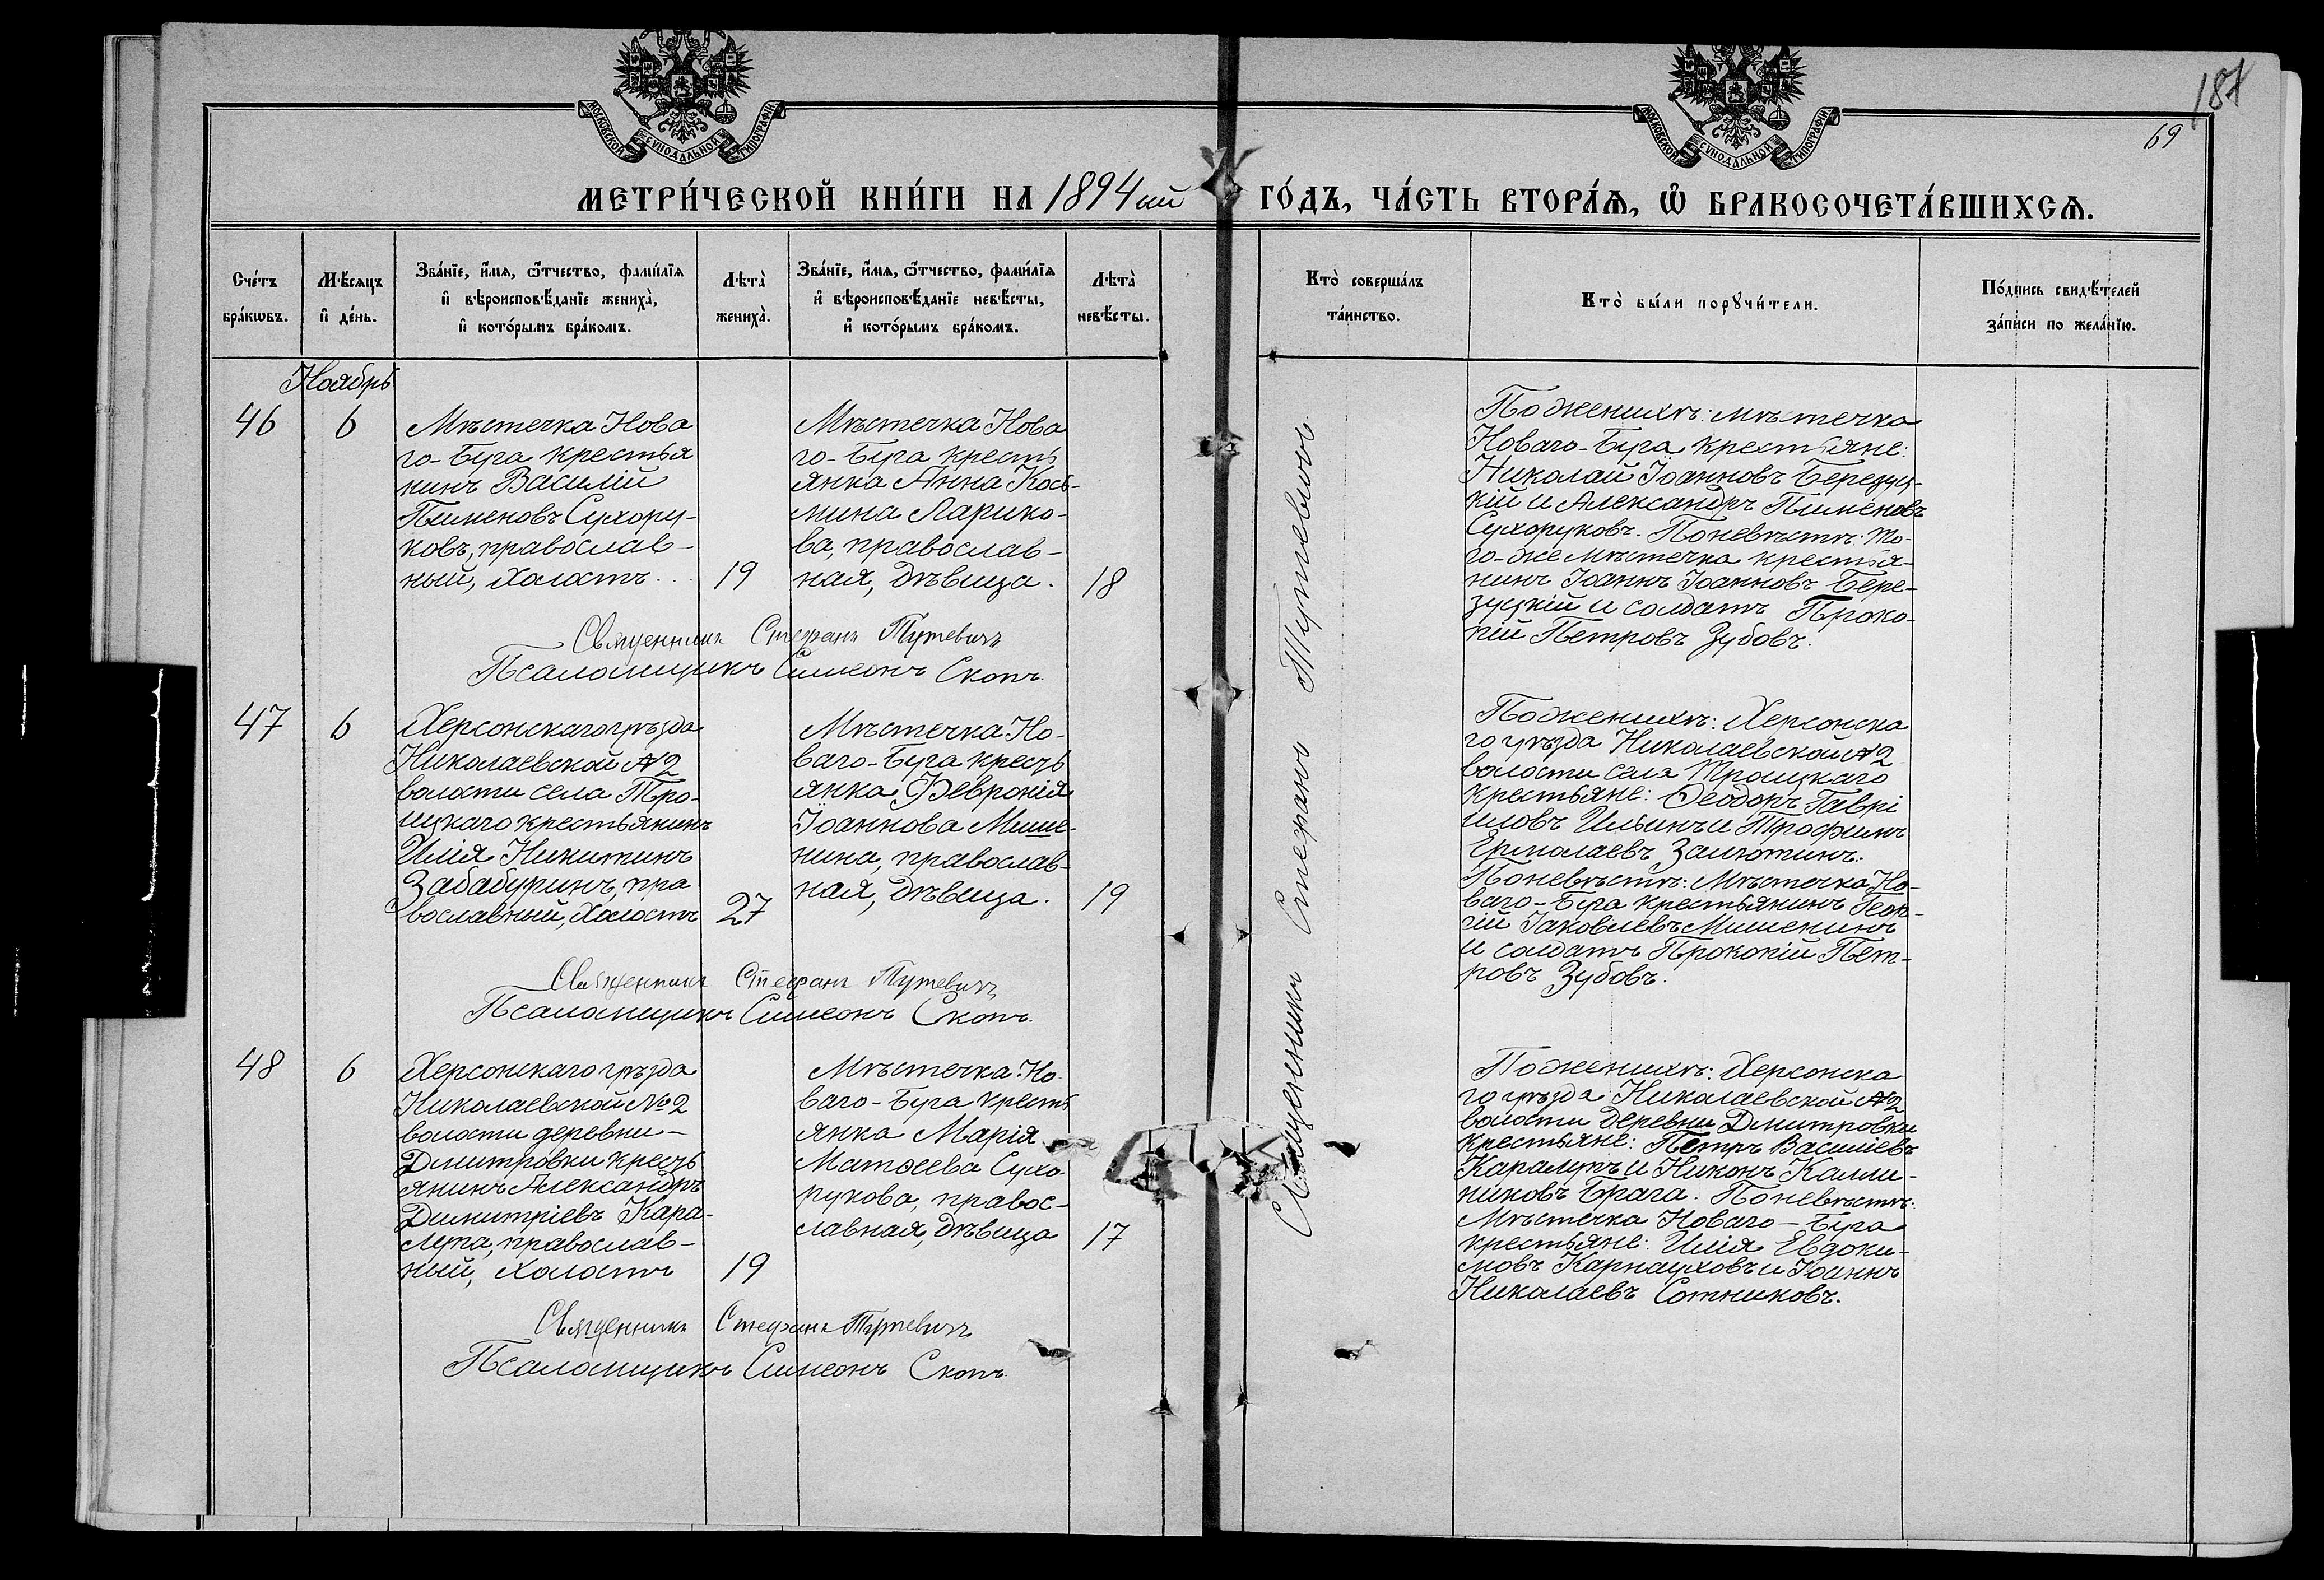 МОСКОВСКОЙ СѴНОДАЛЬНОЙ ТИПОГРАФІИ
МОСКОВСКОЙ СѴНОДАЛЬНОЙ ТИПОГРАФІИ
69
МЕТРИ́ЧЕСКОЙ КНИ́ГИ НА 1894ый ГО́ДЪ, ЧА́СТЬ ВТОРА́Ѧ, Ѽ БРАКОСОЧЕТА́ВШИХСѦ.
Сче́тъ
бра́кѡвъ.
Мѣ́сѧцъ
и҆ де́нь.
Зва́нїе, и҆́мѧ, ѻ҆́тчество, фами́лїѧ
и҆ вѣроисповѣ́данїе жениха̀,
и҆ кото́рымъ бра́комъ.
Лѣта̀
жениха̀.
Зва́нїе, и҆́мѧ, ѻ҆́тчество, фами́лїѧ
и҆ вѣроисповѣ́данїе невѣ́сты,
и҆ кото́рымъ бра́комъ.
Лѣта̀
невѣ́сты.
Кто̀ соверша́лъ
та́инство.
Кто̀ бы́ли порꙋчи́тели.
По́дпись свидѣ́телей
за́писи по жела́нїю.
Ноябрь
46
6
Мѣстечка Нова
го-Буга крестья
нинъ Василій
Пименовъ Сухору-
ковъ, православ-
ный, холостъ.
19
Мѣстечка Нова
го-Буга кресть
янка Анна Кось-
мина Ларико-
ва, православ-
ная, дѣвица.
18
Священникъ Стефанъ Тутевичъ
По женихѣ: мѣстечка
Новаго-Буга крестьяне:
Николай Іоанновъ Березуц-
кій и Александръ Пименовъ
Сухоруковъ. По невѣстѣ: то-
го-же мѣстечка крестья-
нинъ Іоаннъ Іоанновъ Бере-
зуцкій и солдатъ Проко-
пій Петровъ Зубовъ.
Священникъ Стефанъ Тутевичъ
Псаломщикъ Симеонъ Скопъ.
47
6
Херсонскаго уѣзда
Николаевской №2
волости села Тро-
ицкаго крестьянинъ
Илія Никитинъ
Забабуринъ, пра
вославный, холостъ
27
Мѣстечка Но-
ваго-Буга кресть
янка Февронія
Іоаннова Мише-
нина, православ-
ная, дѣвица.
19
По женихѣ: Херсонска
го уѣзда Николаевской №2
волости села Троицкаго
крестьяне: Ѳеодоръ Гаврі
иловъ Ильинъ и Трофимъ
Ермолаевъ Замотинъ.
По невѣстѣ: Мѣстечка Но-
ваго-Буга крестьянинъ Геор-
гій Іаковлевъ Мишенинъ
и солдатъ Прокопій Пет-
ровъ Зубовъ.
Священникъ Стефанъ Тутевичъ
Псаломщикъ Симеонъ Скопъ.
48
6
Херсонскаго уѣзда
Николаевской №2
волости деревни-
Дмитровки кресть
янинъ Александръ
Димитріевъ Кара-
лупа, православ-
ный, холостъ
19
Мѣстечка Но-
ваго-Буга кресть
янка Марія
Матѳеева Сухо
рукова, правос-
лавная, дѣвица
17
По женихѣ: Херсонска
го уѣзда Николаевской №2
волости деревни Дмитровки
крестьяне: Петръ Василіевъ
Каралупъ и Никонъ Калли-
никовъ Брага. По невѣстѣ:
Мѣстечка Новаго-Буга
крестьяне: Илія Евдоки-
мовъ Карнауховъ и Іоаннъ
Николаевъ Сотниковъ.
Священникъ Стефанъ Тутевичъ
Псаломщикъ Симеонъ Скопъ.